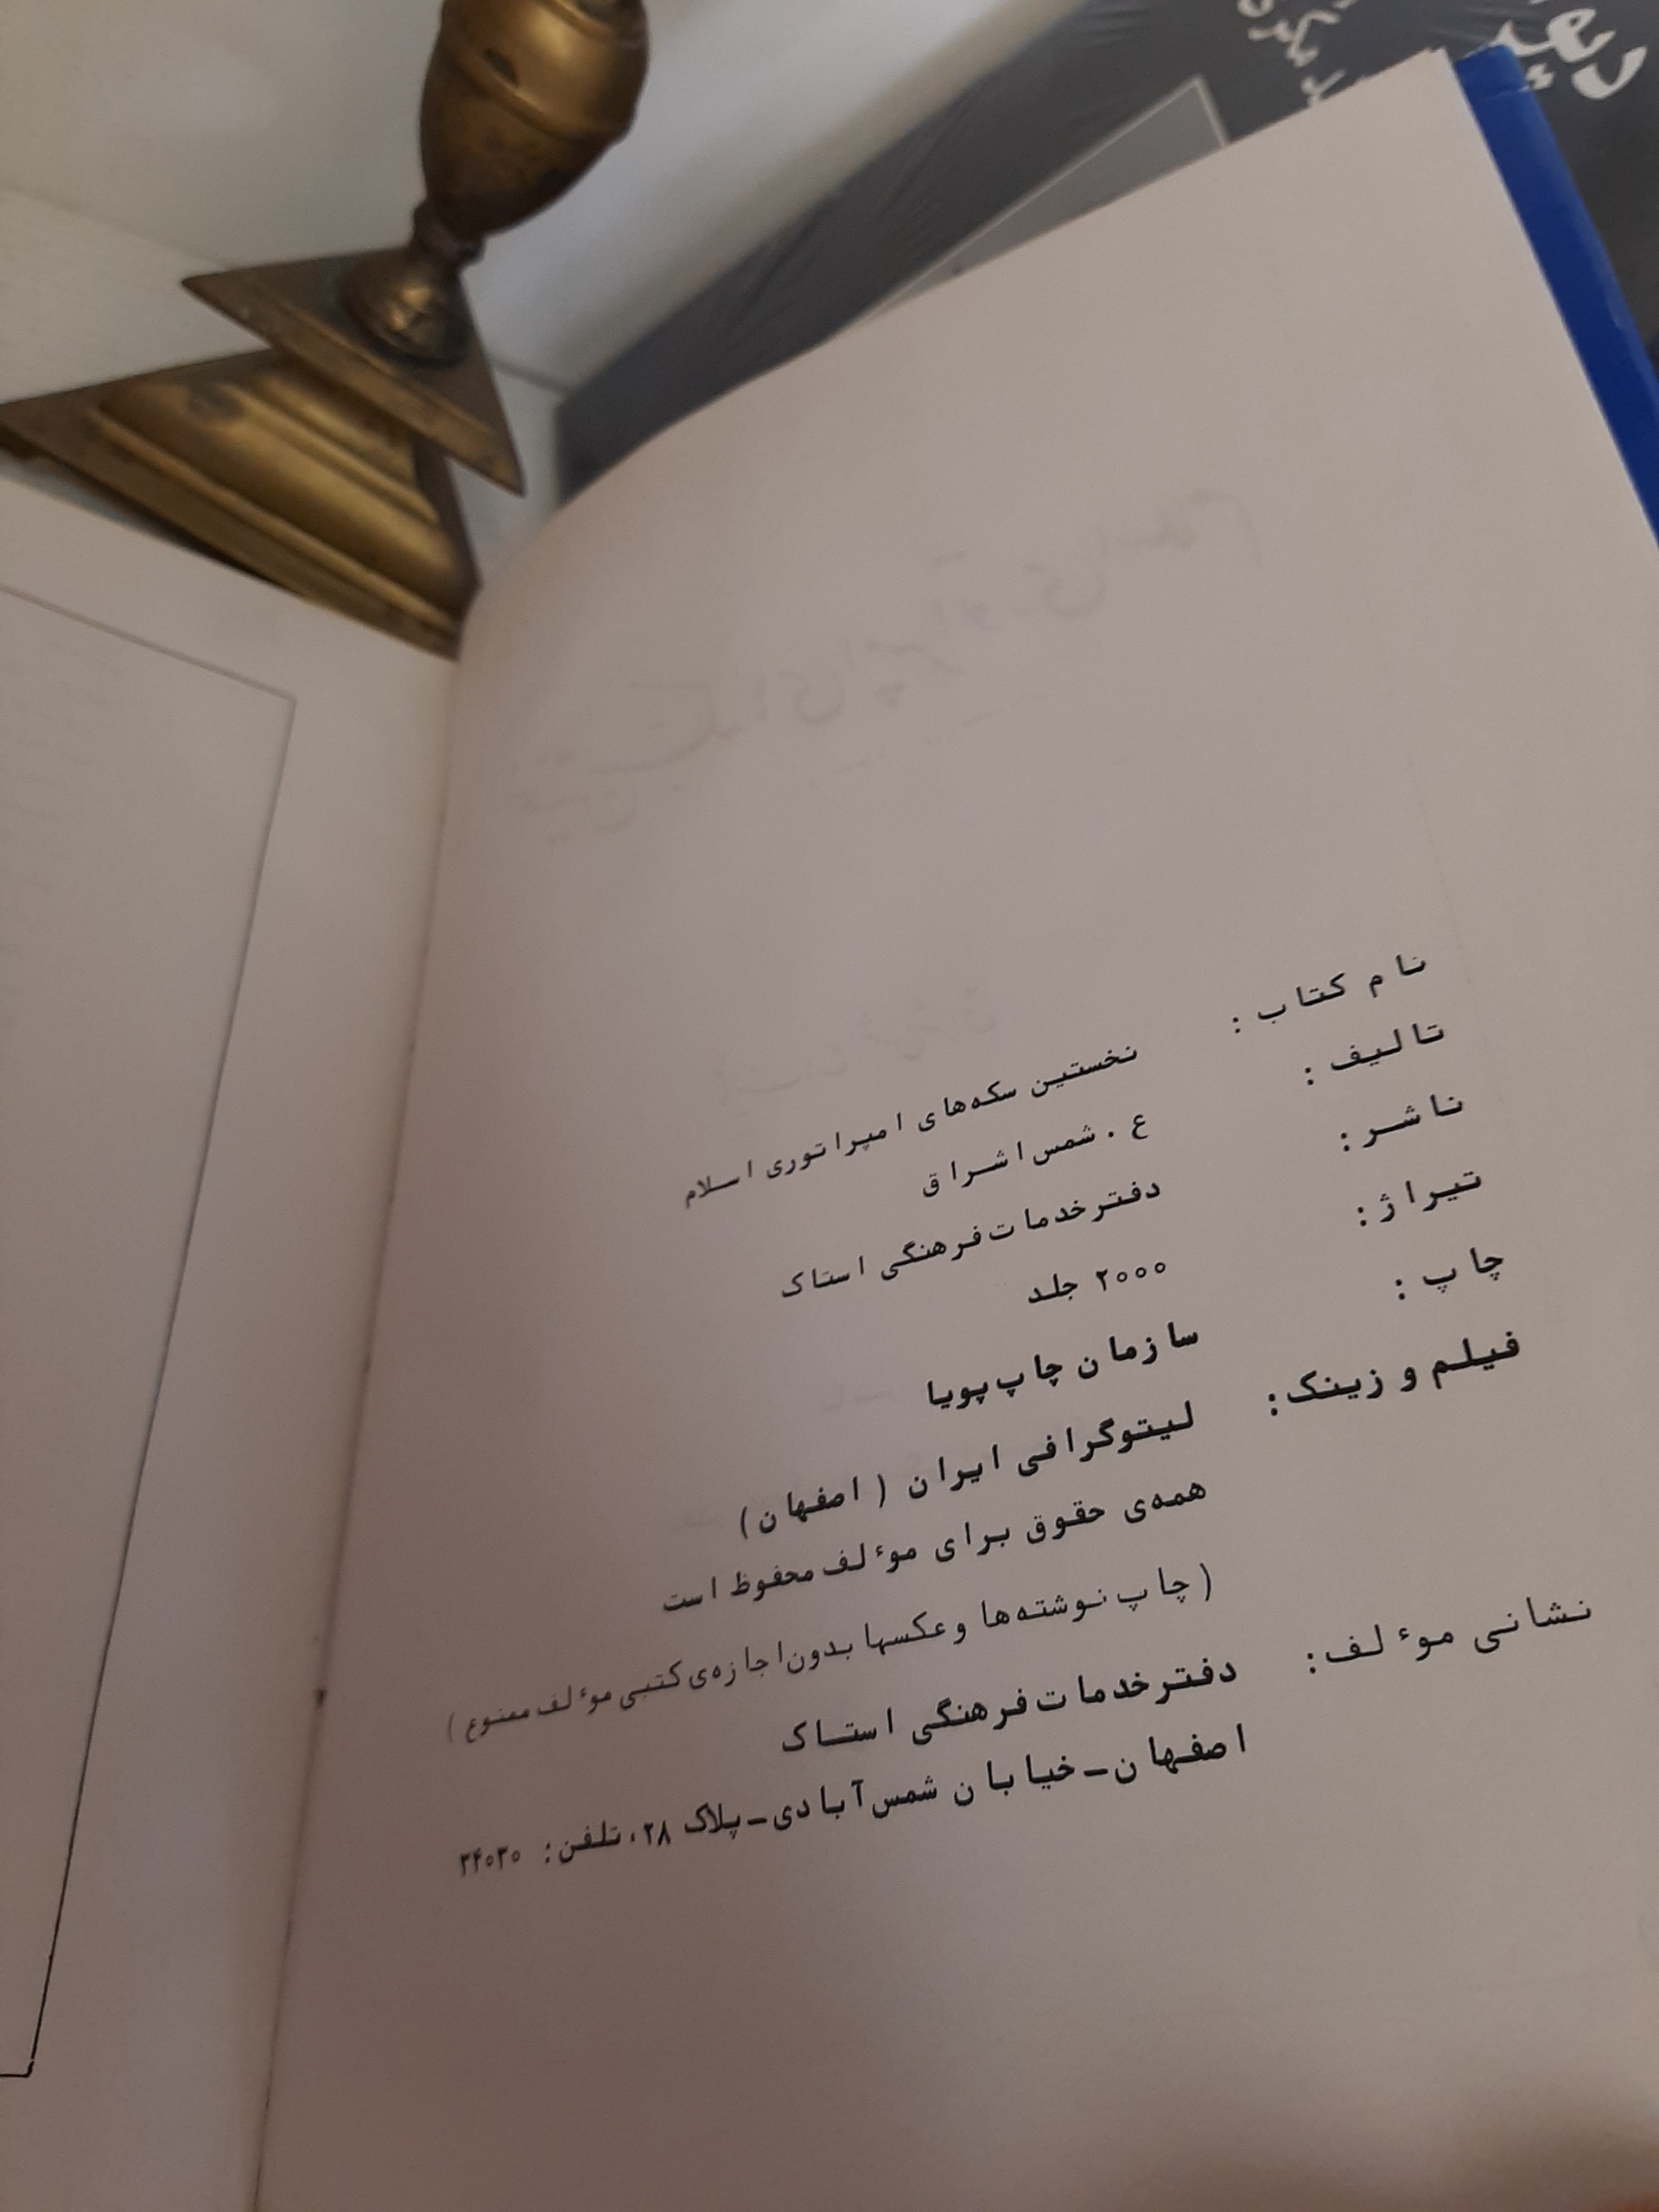 نام کتاب : نخستین سکه‌های امپراتوری اسلام
تالیف : ع . شمس اشراق
ناشر : دفتر خدمات فرهنگی استاک
تیراژ : ۲۰۰۰ جلد
چاپ : سازمان چاپ پویا
فیلم و زینک : لیتوگرافی ایران ( اصفهان )
همه‌ی حقوق برای موٴلف محفوظ است
( چاپ نوشته‌ها و عکسها بدون اجازه‌ی کتبی موٴلف ممنوع )
نشانی موٴلف : دفتر خدمات فرهنگی استاک
اصفهان ـ خیابان شمس آبادی ـ پلاک ۲۸، تلفن : ۳۴۰۳۰